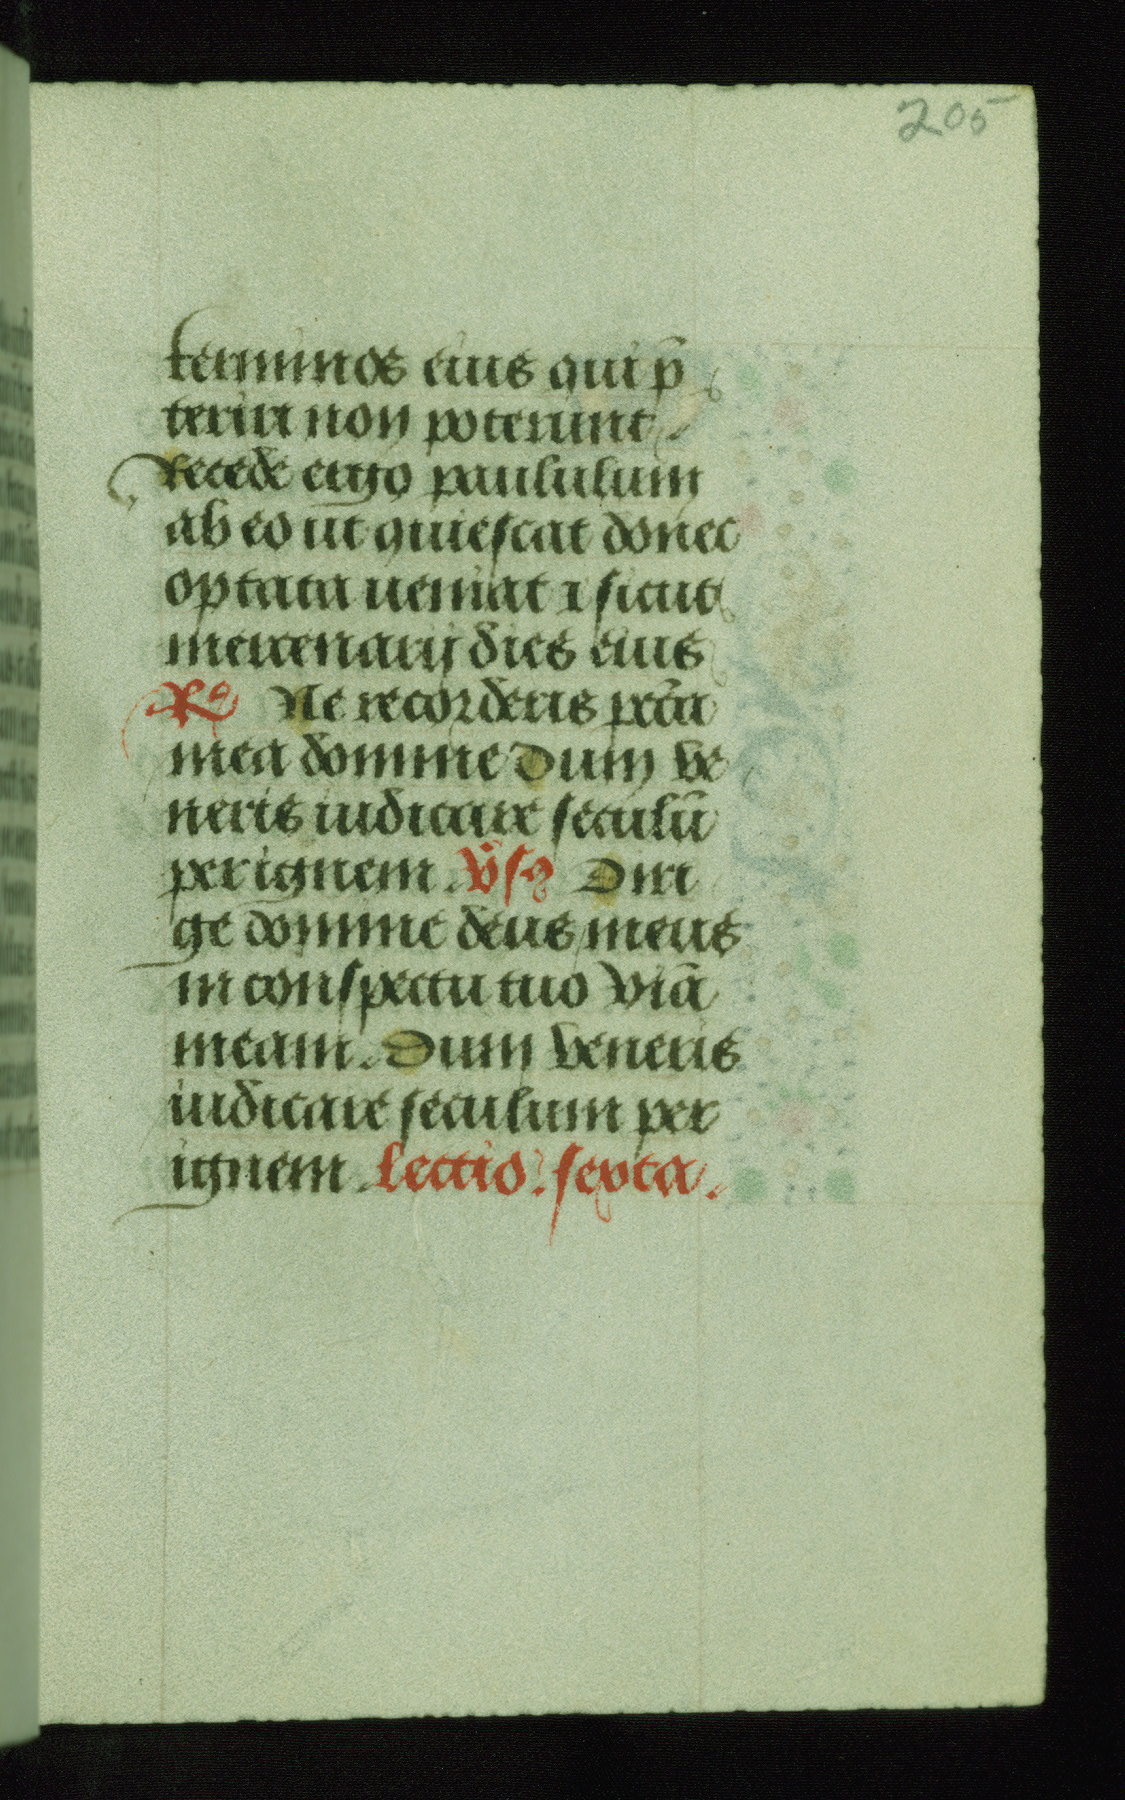 205
terminos eius qui p̄
teriri non poterunt.
recede ergo paululum
ab eo ut quiescat donec
optata ueniat ⁊ sicut
mercenarij dies eius
R̷ Ne recorderis pctā
mea domine Dum ve
neris iudicare seculū
per ignem. v̊sꝫ Diri
ge domine deus meus
in conspectu tuo viā
meam. Dum veneris
iudicare seculum per
ignem. Lectio. septa.